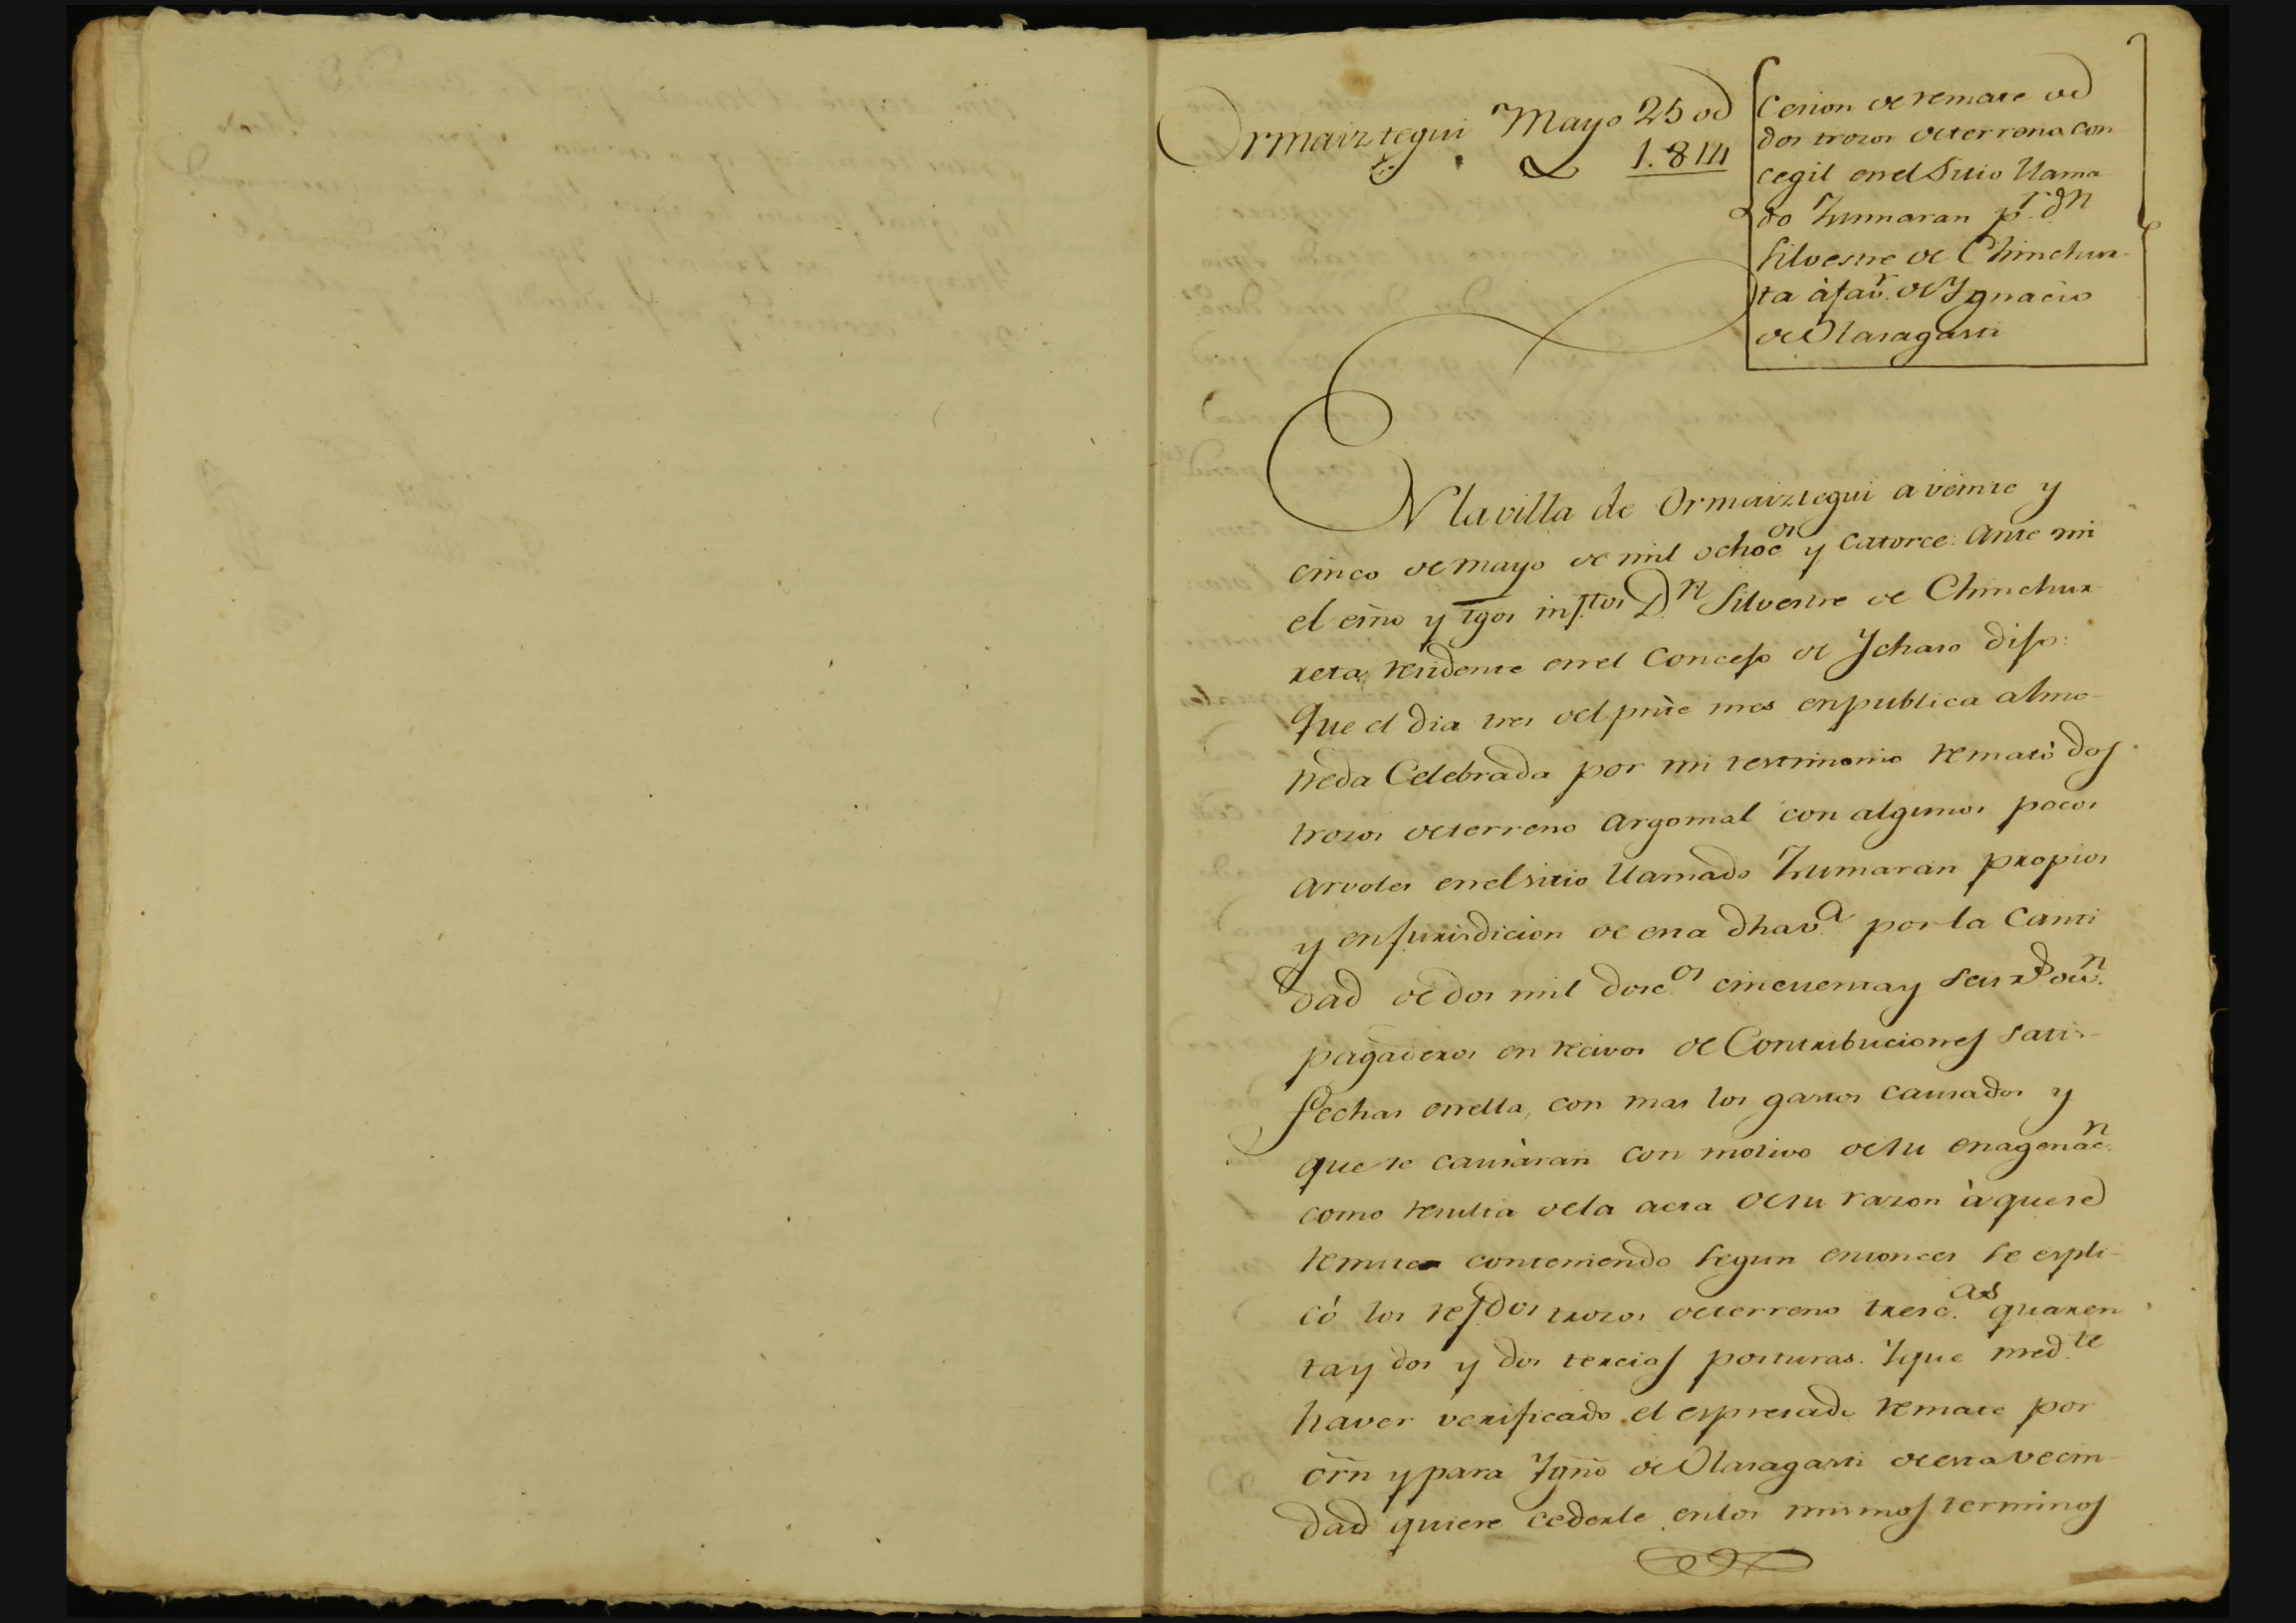 Ormaiztegui Mayo 25 de
1.814
Cesion de remate de
dos trozos de terreno con
cegil en el Sitio llama
do Zumaran pr. Dn
Silvestre de Chinchur
ta à favr. de Ygnacio
de Olasagasti
EN la villa de Ormaiztegui a veinte y
cinco de mayo de mil ochocos. y catorce: Ante mi
el esño y tgos infrtos Dn. Silvestre de Chinchur
reta, residente en el Concejo de Ychaso dijo:
Que el dia tres del pnte mes en publica almo-
neda Celebrada por mi testimonio remató dos
trozos de terreno argomal con algunos pocos
arvoles en el sitio llamado Zumaran propios
y en jurisdicion de esta dha va. por la Canti
dad de dos mil dosc.os cincuenta y seis rs. de vn.
pagaderos en recivos de Contribuciones satis-
fechas en ella, con mas los gastos causados y
que se causàran con motivo de su enagenacn.
como resulta de la acta de su razon à que se
remite conteniendo segun entonces se espli-
có los refdos trozos de terreno tresc.as quaren
ta y dos y dos tercias posturas. Y que medte.
haver verificado el espresado remate por
orñ y para Ygño de Olasagasti de esta vecin-
dad quiere cederle en los mismos terminos